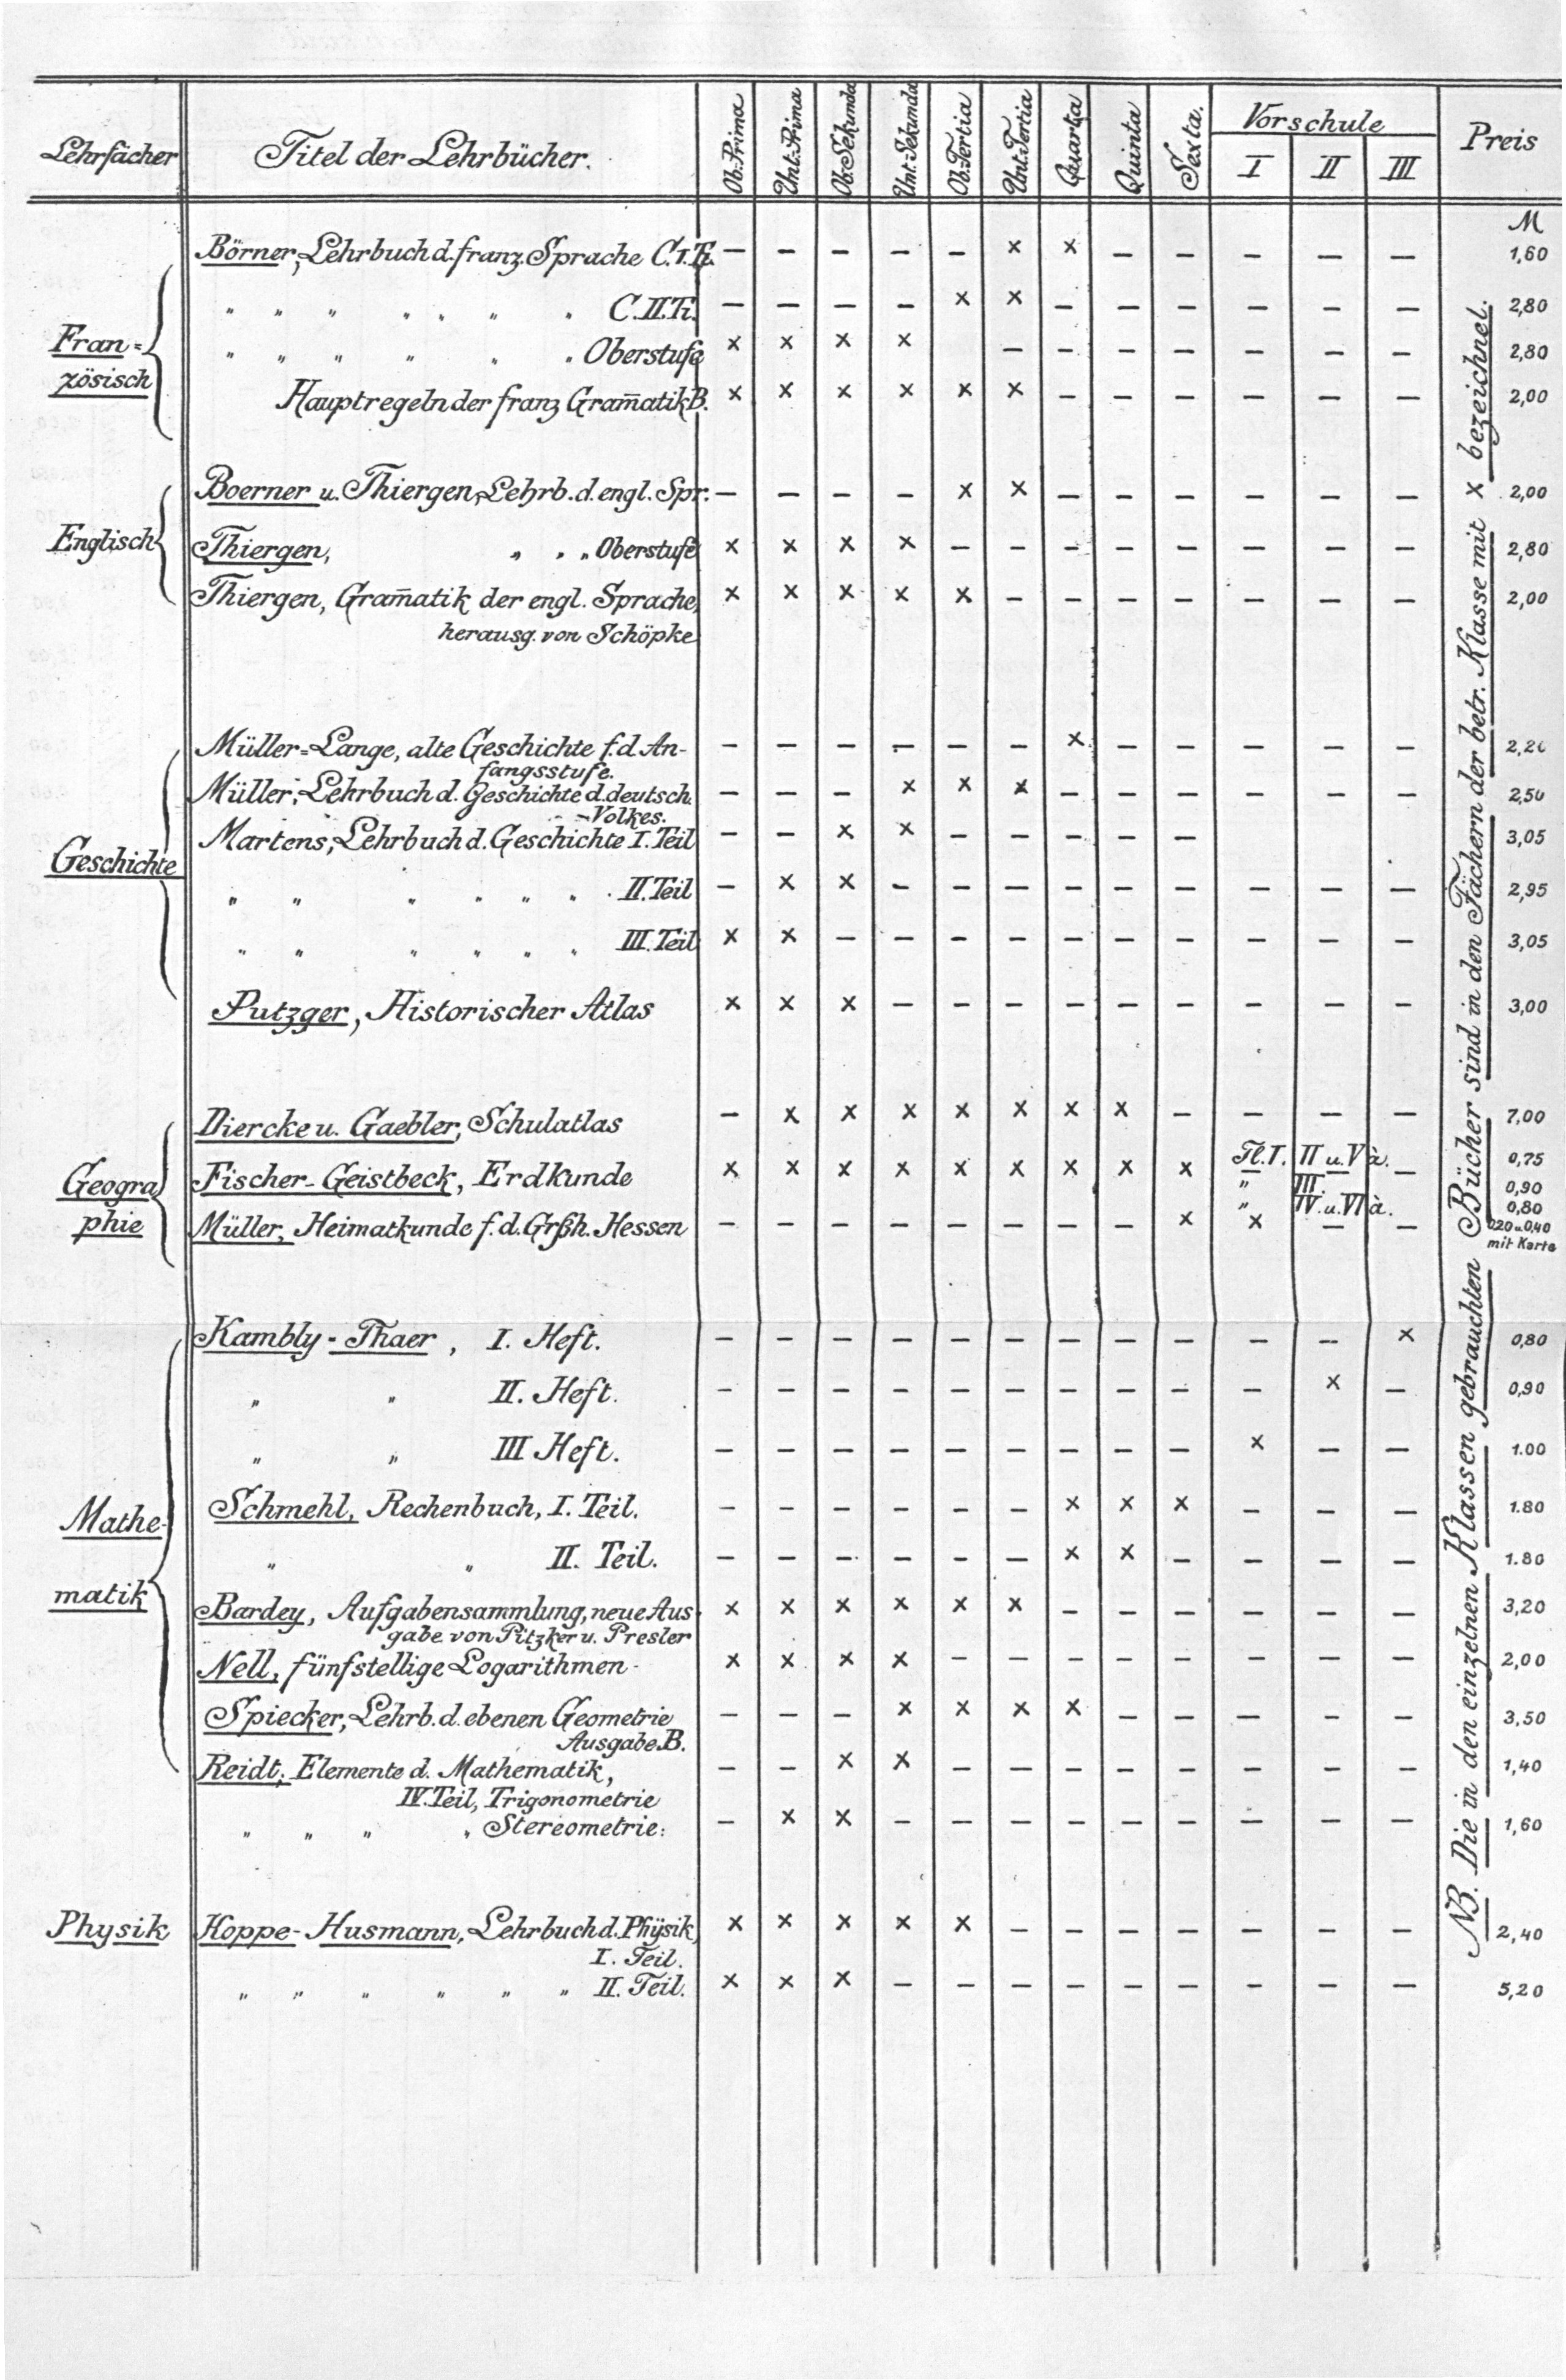 Lehrfächer Titel der Lehrbücher. Ob.-Prima Unt.-Prima Ob.-Sekunda Unt.-Sekunda Ob.-Tertia Unt.-Tertia Quarta Quinta Sexta. Vorschule Preis
I II III
M
Fran=
zösisch
Börner, Lehrbuch d. franz. Sprache C. I. Tl. — — — — — × × — — — — — 1,60
" " " " " " " C. II. Tl. — — — — × × — — — — — — 2,80
" " " " " " Oberstufe × × × × — — — — — — — 2,80
Hauptregeln der franz Gram̄atik B. × × × × × × — — — — — — 2,00
Englisch
Boerner u. Thiergen, Lehrb. d. engl. Spr. — — — — × × — — — — — — 2,00
Thiergen, " " " Oberstufe × × × × — — — — — — — — 2,80
Thiergen, Gram̄atik der engl. Sprache, × × × × × — — — — — — — 2,00
herausg. von Schöpke
Geschichte
Müller=Lange, alte Geschichte f. d. An- — — — — — — × — — — — —
fangsstufe.
Müller, Lehrbuch d. Geschichte d. deutsch. — — — × × × — — — — — — 2,50
Volkes.
Martens, Lehrbuch d. Geschichte I. Teil — — × × — — — — — 3,05
" " " " " " II. Teil — × × — — — — — — — — — 2,95
" " " " " " III. Teil × × — — — — — — — — — — 3,05
Putzger, Historischer Atlas × × × — — — — — — — — — 3,00
Geogra
phie
Diercke u. Gaebler, Schulatlas — × × × × × × × — — — — 7,00
Fischer-Geistbeck, Erdkunde × × × × × × × × × Tl. I. II u. V à. — 0,75
" III. 0,90
" IV. u. VI à. 0,80
Müller, Heimatkunde f. d. Grßh. Hessen — — — — — — — — × × — — 0,20 u. 0,40
mit Karte
Mathe-
matik
Kambly-Thaer, I. Heft. — — — — — — — — — — — × 0,80
" " II. Heft. — — — — — — — — — — × — 0,90
" " III Heft. — — — — — — — — — × — — 1.00
Schmehl, Rechenbuch, I. Teil. — — — — — — × × × — — — 1.80
" " II. Teil. — — — — — — × × — — — — 1.80
Bardey, Aufgabensammlung, neue Aus- × × × × × × — — — — — — 3,20
gabe von Pitzker u. Presler
Nell, fünfstellige Logarithmen × × × × — — — — — — — — 2,00
Spiecker, Lehrb. d. ebenen Geometrie — — — × × × × — — — — — 3,50
Ausgabe B.
Reidt, Elemente d. Mathematik, — — × × — — — — — — — — 1,40
IV. Teil, Trigonometrie
" " " " Stereometrie: — × × — — — — — — — — — 1,60
Physik
Koppe-Husmann, Lehrbuch d. Physik, × × × × × — — — — — — — 2,40
I. Teil.
" " " " " " II. Teil. × × × — — — — — — — — — 5,20
NB. Die in den einzelnen Klassen gebrauchten Bücher sind in den Fächern der betr. Klasse mit × bezeichnet.